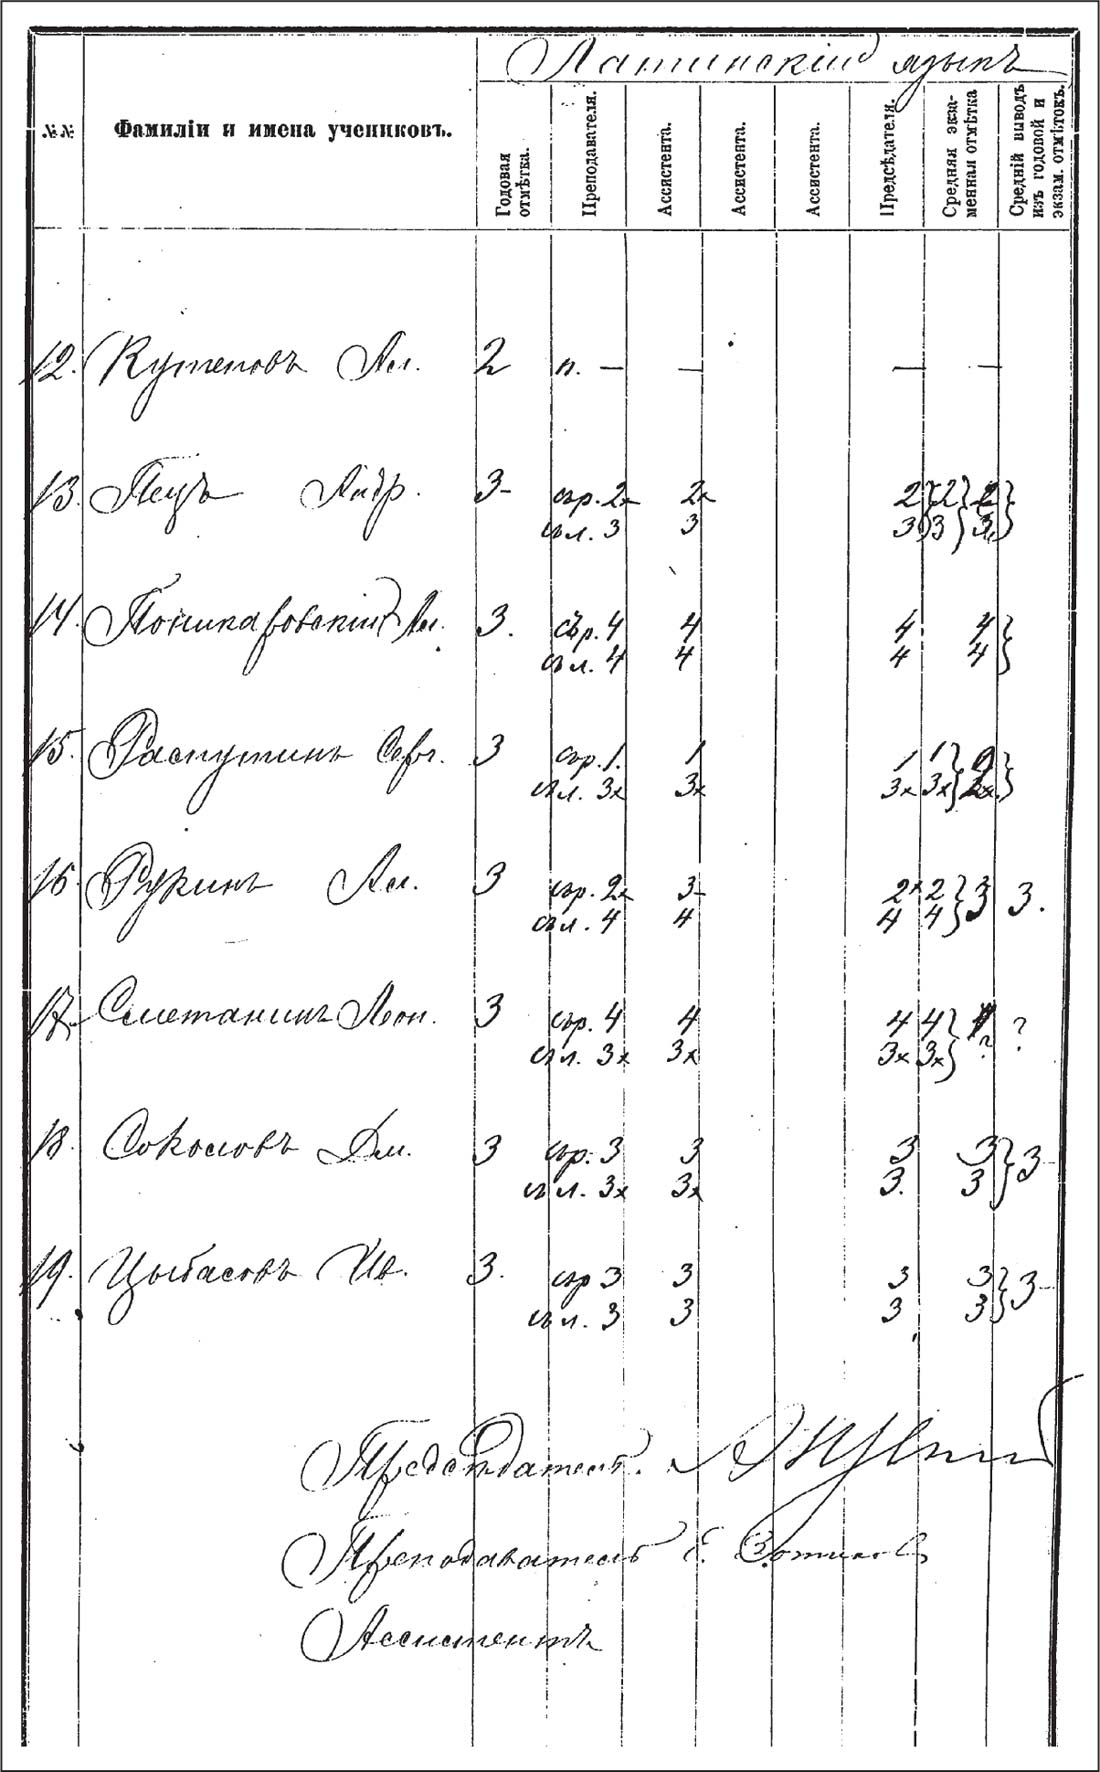 Латинскій языкъ
№№
Фамиліи и имена учениковъ.
Годовая отмѣтка.
Преподавателя.
Ассистента.
Ассистента.
Ассистента.
Предсѣдателя.
Средняя экза-
менная отмѣтка
Средній выводъ
изъ годовой и
экзам. отмѣтокъ.
12. Кутеповъ Ал. 2 п. — — — —
13. Пецъ Андр. 3- гр. 2x 2x 2 2 2
сл. 3 3 3 3 3
14. Поникаровскій Ал. 3. гр. 4 4 4 4
сл. 4 4 4 4
15. Распутинъ Серг. 3 гр. 1. 1 1 1
сл. 3x 3x 3x 3x 2x
16 Рукинъ Ал. 3 гр. 2x 3- 2x 2 3 3.
сл. 4 4 4 4
17. Сметанинъ Леон. 3 гр. 4 4 4 4 ?
сл. 3x 3x 3x 3x ?
18. Соколовъ Дм. 3 гр. 3 3 3 3 3-
сл. 3x 3x 3. 3
19. Цыбасовъ Ив. 3. гр 3 3 3 3 3-
сл. 3 3 3 3
Предсѣдатель.
Преподаватель Е. Зотиков
Ассистентъ